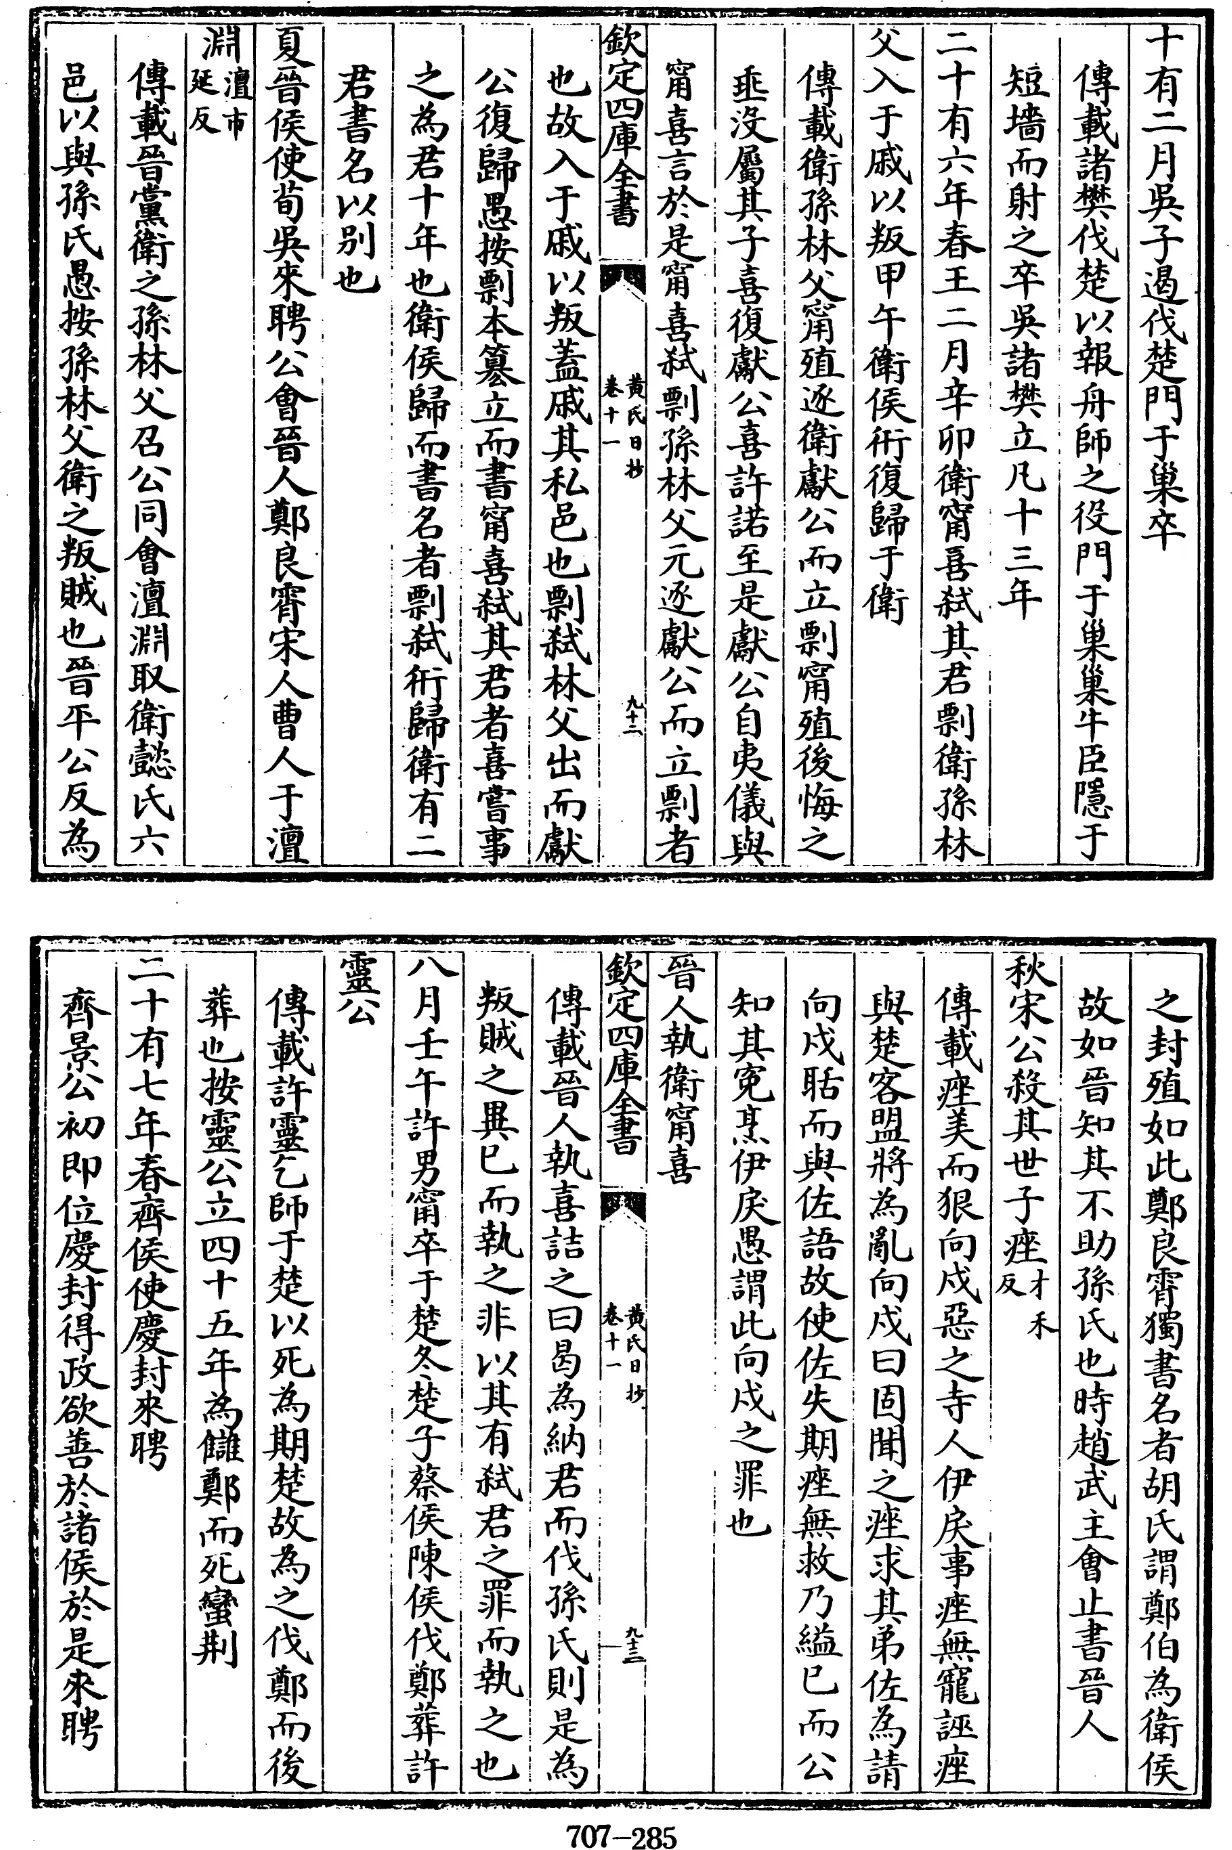 十有二月吳子遏伐楚門于巢卒
傳載諸樊伐楚以報舟師之役門于巢巢牛臣隱于
短墻而射之卒吳諸樊立凡十三年
二十有六年春王二月辛卯衛甯喜弑其君剽衛孫林
父入于戚以叛甲午衛侯衎復歸于衛
傳載衛孫林父甯殖逐衛獻公而立剽甯殖後悔之
垂沒屬其子喜復獻公喜許諾至是獻公自夷儀與
甯喜言於是甯喜弑剽孫林父元逐獻公而立剽者
欽定四庫全書
黄氏日抄
卷十一
九十二
也故入于戚以叛葢戚其私邑也剽弑林父出而獻
公復歸愚按剽本篡立而書甯喜弑其君者喜嘗事
之為君十年也衛侯歸而書名者剽弑衎歸衛有二
君書名以别也
夏晉侯使荀吳來聘公會晉人鄭良霄宋人曹人于澶
淵澶市
延反
傳載晉黨衛之孫林父召公同會澶淵取衛懿氏六
邑以與孫氏愚按孫林父衛之叛賊也晉平公反為
之封殖如此鄭良霄獨書名者胡氏謂鄭伯為衛侯
故如晉知其不助孫氏也時趙武主會止書晉人
秋宋公殺其世子痤才禾
反
傳載痤美而狠向戌惡之寺人伊戾事痤無寵誣痤
與楚客盟將為亂向戌曰固聞之痤求其弟佐為請
向戌聒而與佐語故使佐失期痤無救乃縊已而公
知其寃烹伊戾愚謂此向戌之罪也
晉人執衛甯喜
欽定四庫全書
黄氏日抄
卷十一
九十三
傳載晉人執喜詰之曰曷為納君而伐孫氏則是為
叛賊之黨已而執之非以其有弑君之罪而執之也
八月壬午許男甯卒于楚冬楚子蔡侯陳侯伐鄭葬許
靈公
傳載許靈乞師于楚以死為期楚故為之伐鄭而後
葬也按靈公立四十五年為讎鄭而死蠻荆
二十有七年春齊侯使慶封來聘
齊景公初即位慶封得政欲善於諸侯於是來聘
707-285